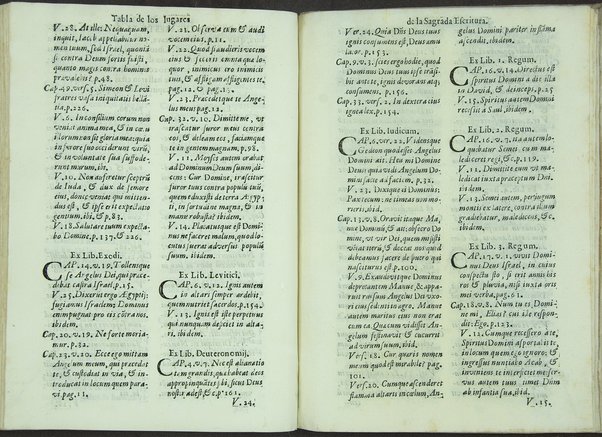 Tabla de los lugares
V. 28. At ille: Nequaquam,
inquit, Iacob appellabitur no-
men tuum, sed Israel, quoniã si
contra Deum fortis fuisti,
quanto magis contra homines
prævalebis? p.48.
Cap. 49. vers. 5. Simeon & Levi
fratres vasa iniquitatis bella-
tia. p.226.
V. 6. In consilium eorum non
veniat anima mea, & in cœtu
illorum non sit gloria mea: quia
in furore suo occiderunt virũ,
& in voluntate sua suffode-
runt murum. ibi.
V. 10. Non auferetur sceptrũ
de Iuda, & dux de femore
eius, donec veniat qui mitten-
dus est, & ipse erit expectatio
gentium. ibi. & p.83.
V. 18. Salutare tuum expecta-
bo Domine. p.137. & 226.
Ex Lib. Exodi.
CAP. 14. v. 19. Tollensque
se Angelus Dei, qui præce-
debat castra Israel. p.15.
V. 25. Dixerunt ergo Ægyptij:
fugiamus Israelem; Dominus
enim pugnat pro eis contra nos.
ibidem.
Cap. 20. v. 19. Ne forte moria-
mur. p.32.
Cap. 23. v. 20. Ecce ego mittam
Angelum meum, qui præcedat
te, & custodiat in via, & in-
troducat in locum quem para-
vi. pag. 11.
V. 21. Observa eum & audi
vocem eius. p.11.
V. 22. Quod si audieris vocem
eius & feceris omnia quæ lo-
quor, inimicus ero inimicis
tuis, & affligam affligentes te.
pag. 12.
V. 23. Præcedetque te Ange-
lus meus pag. 12.
Cap. 32. v. 10. Dimitte me, vt
irascatur furor meus contra
eos, & deleam eos, faciamque
te in gentem magnam. p.98.
V. 11. Moyses autem orabat
ad Dominum Deum suum, di-
cens: Cur Domine, irascitur
furor tuus contra populũ tuũ,
quem eduxisti de terra Ægyp-
ti, in fortitudine magna, & in
manu robusta? ibidem.
V. 14. Placatusque est Domi-
nus ne faceret malum, quod lo-
cutus fuerat adversus populũ
suum. ibidem.
Ex Lib. Levitici.
CAP. 6. v. 12. Ignis autem
in altari semper ardebit,
quem nutriet sacerdos. p.154.
V. 13. Ignis est iste perpetuus
qui nunquam deficiet in alta-
ri. ibidem.
Ex Lib. Deuteronomij.
CAP. 4. v. 7. Nec est alia natio
tam grandis, quæ habeat deos
appropinquantes sibi, sicut Deus
noster adest & c. p.161.
V. 24.
de la Sagrada Escritura.
Ver. 24. Quia Dñs Deus tuus
ignis consumens est, Deus æmu-
lator. p.153.
Cap. 9. v. 3. scies ergo hodie, quod
Dominus Deus tuus ipse trãsi-
bit ante te, ignis devorans atq;
consumens. p.156.
Cap. 33. vers. 2. In dextera eius
ignea lex. p.154.
Ex Lib. Iudicum.
CAP. 6. vers. 22. Vidensque
Gedeon quod esset Angelus
Domini ait: Heu mi Domine
Deus quia vidi Angelum Do-
mini facie ad faciem. p.32.
V. 23. Dixitque ei Dominus:
Pax tecum: ne timeas non mo-
rieris. ibid.
Cap. 13. v. 8. Oravit itaque Ma-
nue Dominum & ait: obsecro Do-
mine, vt vir Dei, quem misisti
veniat iterũ, & doceat nos quid
debeamus facere de puero qui
nasciturus est. p.100.
V. 9. Exaudivitque Dominus
deprecantem Manue, & appa-
ruit rursum Angelus Dei vxo-
ri eius sedenti in agro. Manue
autem maritus eius non erat
cum ea. Quæ cum vidisset An-
gelum festinavit & cucurrit
ad virum suum. ibid.
Vers. 18. Cur quæris nomen
meum quod est mirabile? pag.
101.
Vers. 20. Cumque ascenderet
flamma altaris in cœlum, An-
gelus Domini pariter in flamma
ascendit. ibidem.
Ex Lib. 1. Regum.
CAP. 16. v. 14. Directus est
Spiritus Domini a die illa
in David, & deinceps. p.25
V. 15. Spiritus autem Domini
recessit a Saul. ibidem.
Ex Lib. 2. Regum.
CAP. 16. v. 10. Ita autem lo-
quebatur Semei cum ma-
lediceret regi, & c. p.119.
V. 11. Dimittite eum vt ma-
ledicat iuxta præceptum Dni.
ibidem.
V. 13. Semei autem, per iugum
montis ex latere, contra illum
gradiebatur, maledicens, & c.
ibidem.
Ex Lib. 3. Regum.
CAP. 17. v. 1. vivit Domi-
nus Deus Israel, in cuius
conspectu sto, si erit annis his
ros & pluvia, nisi iuxta oris
mei verba. pag. 61.
Cap. 18. v. 8. Num tu es Domi-
ne mi, Elias? Cui ille respon-
dit: Ego. p.123.
V. 12. Cumque recessero a te,
Spiritus Domini asportabit te,
in locum quem ego ignoro: &
ingressus nuntiabo Acab, &
non inveniens te interficiet me: ser-
vus autem tuus timet Dñm
ab infantia sua. ibid.
V. 15.